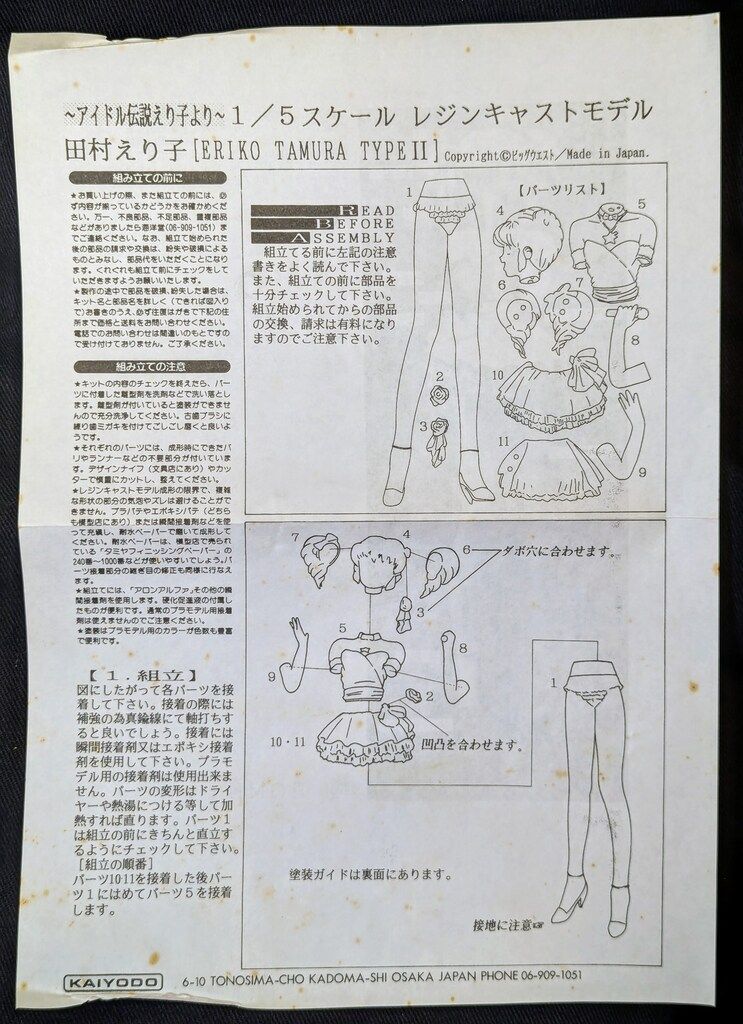 ~アイドル伝説えり子より~1/5スケール レジンキャストモデル
田村えり子[ERIKO TAMURA TYPEⅡ]Copyright©ビッグウエスト/Made in Japan.
組み立ての前に
★お買い上げの際、また組立ての前には、必
ず内容が揃っているかどうかをお確かめくだ
さい。万一、不良部品、不足部品、重複部品
などがありましたら海洋堂(06-909-1051)ま
でご連絡ください。なお、組立て始められた
後の部品の請求や交換は、紛失や破損による
ものとみなし、部品代をいただくことになり
ます。くれぐれも組立て前にチェックをして
いただきますようお願いいたします。
★製作の途中で部品を破損、紛失した場合は、
キット名と部品名を詳しく(できれば図入り
で)お書きのうえ、必ず往復はがきで下記の住
所まで価格と送料をお問い合わせください。
電話でのお問い合わせは間違いのもとですの
で受け付けておりません。ご了承ください。
組み立ての注意
★キットの内容のチェックを終えたら、パー
ツに付着した離型剤を洗剤などで洗い落とし
ます。離型剤が付いていると塗装ができませ
んので充分洗浄してください。古歯ブラシに
練り歯ミガキを付けてごしごし磨くと良いよ
うです。
★それぞれのパーツには、成形時にできたバ
リやランナーなどの不要部分が付いていま
す。デザインナイフ(文具店にあり)やカッ
ターで慎重にカットし、整えてください。
★レジンキャストモデル成形の限界で、複雑
な形状の部分の気泡やズレは避けることがで
きません。プラパテやエポキシパテ(どちら
も模型店にあり)または瞬間接着剤などを使
って充填し、耐水ペーパーで磨いて成形して
ください。耐水ペーパーは、模型店で売られ
ている「タミヤフィニッシングペーパー」の
240番~1000番などが使いやすいでしょう。パ
ーツ接着部分の継ぎ目の修正も同様に行なえ
ます。
★組立てには、「アロンアルファ」その他の瞬
間接着剤を使用します。硬化促進液の付属し
たものが便利です。通常のプラモデル用接着
剤は使えませんのでご注意ください。
★塗装はプラモデル用のカラーが色数も豊富
で便利です。
【1.組立】
図にしたがって各パーツを接
着して下さい。接着の際には
補強の為真鍮線にて軸打ちす
ると良いでしょう。接着には
瞬間接着剤又はエポキシ接着
剤を使用して下さい。プラモ
デル用の接着剤は使用出来ま
せん。パーツの変形はドライ
ヤーや熱湯につける等して加
熱すれば直ります。パーツ1
は組立の前にきちんと直立す
るようにチェックして下さい。
[組立の順番]
パーツ10・11を接着した後パー
ツ1にはめてパーツ5を接着
します。
READ
BEFORE
ASSEMBLY
組立てる前に左記の注意
書きをよく読んで下さい。
また、組立ての前に部品を
十分チェックして下さい。
組立始められてからの部品
の交換、請求は有料になり
ますのでご注意下さい。
【パーツリスト】
1
4
5
6
7
8
2
10
3
11
9
7
4
6
ダボ穴に合わせます。
3
5
8
9
2
1
10・11
凹凸を合わせます。
塗装ガイドは裏面にあります。
接地に注意☞
KAIYODO
6-10 TONOSIMA-CHO KADOMA-SHI OSAKA JAPAN PHONE 06-909-1051